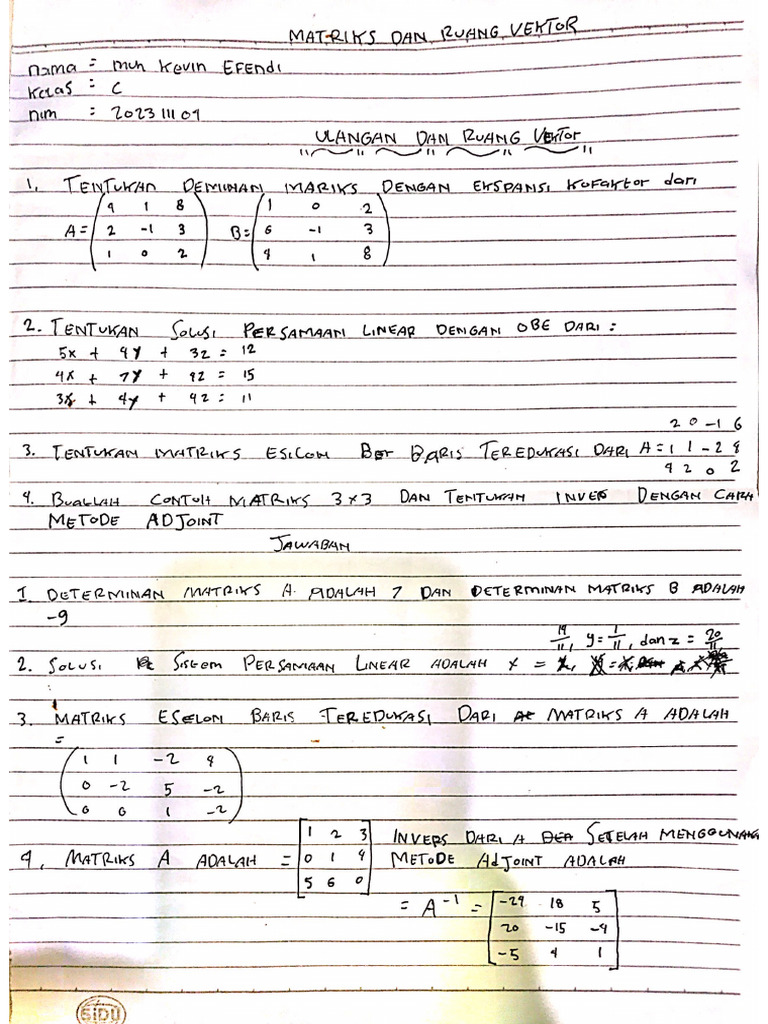 MATRIKS DAN RUANG VEKTOR
nama = muh Kevin EFENdi
Kelas : C
nim : 20231109
ULANGAN DAN RUANG VEKTOR
1. TENTUKAN DEMINAN MARIKS DENGAN EKSPANSI KOFAKTOR dari
A = ( 4 1 8 B = ( 1 0 2
2 -1 3 6 -1 3
1 0 2 ) 4 1 8 )
2. TENTUKAN SOLUSI PERSAMAAN LINEAR DENGAN OBE DARI :
5x + 4y + 3z = 12
4x + 7y + 4z = 15
3x + 4y + 4z = 11
2 0 -1 6
3. TENTUKAN MATRIKS ESILOM BARIS TEREDUKASI DARI A = 1 1 -2 4
4 2 0 2
4. BUALLAH CONTOH MATRIKS 3x3 DAN TENTUKAN INVES DENGAN CARA
METODE ADJOINT
JAWABAN
1. DETERMINAN MATRIKS A ADALAH 7 DAN DETERMINAN MATRIKS B ADALAH
-9
2. SOLUSI SISTEM PERSAMAAN LINEAR ADALAH x = 19/11, y = 1/11, dan z = 20/11
3. MATRIKS ESELON BARIS TEREDUKASI DARI MATRIKS A ADALAH
=
( 1 1 -2 4
0 -2 5 -2
0 0 1 -2 )
4. MATRIKS A ADALAH = [ 1 2 3
0 1 4
5 6 0 ]
INVERS DARI A SETELAH MENGGUNAKAN
METODE AdJOINT ADALAH
= A⁻¹ = [ -24 18 5
20 -15 -4
-5 4 1 ]
SiDU